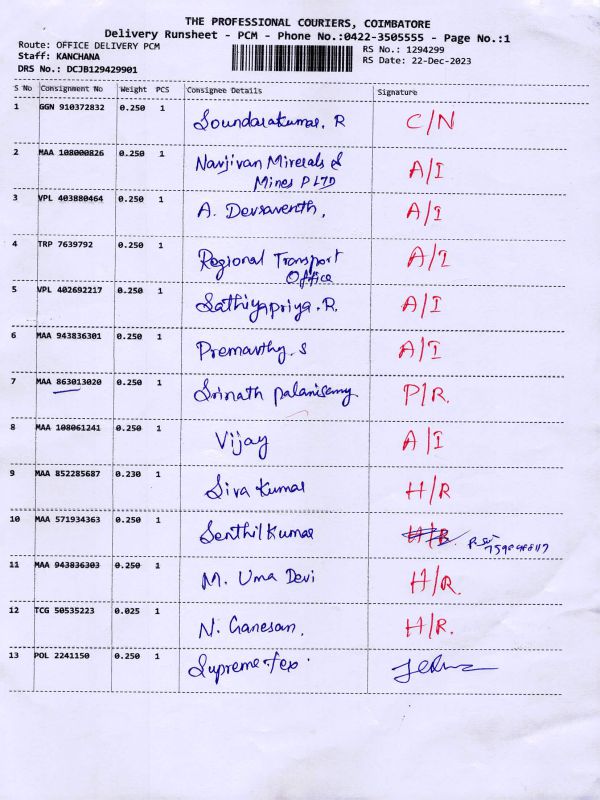 THE PROFESSIONAL COURIERS, COIMBATORE
Delivery Runsheet - PCM - Phone No.:0422-3505555 - Page No.:1
Route: OFFICE DELIVERY PCM
RS No.: 1294299
Staff: KANCHANA
RS Date: 22-Dec-2023
DRS No.: DCJB129429901
S No Consignment No Weight PCS Consignee Details Signature
1 GGN 910372832 0.250 1 Soundarakumar. R C/N
2 MAA 108000826 0.250 1 Navjivan Minerals & A/I
Mines P LTD
3 VPL 403880464 0.250 1 A. Devsaventh. A/I
4 TRP 7639792 0.250 1 Regional Transport A/I
Office
5 VPL 402692217 0.250 1 Sathiyapriya.R. A/I
6 MAA 943836301 0.250 1 Premavthy.S A/I
7 MAA 863013020 0.250 1 Srinath Palanisamy P/R.
8 MAA 108061241 0.250 1 Vijay A/I
9 MAA 852285687 0.230 1 Siva Kumar H/R
10 MAA 571934363 0.250 1 Senthil Kumar H/R.
11 MAA 943836303 0.250 1 M. Uma Devi H/R.
12 TCG 50535223 0.025 1 N. Ganesan. H/R.
13 POL 2241150 0.250 1 Supreme tex.